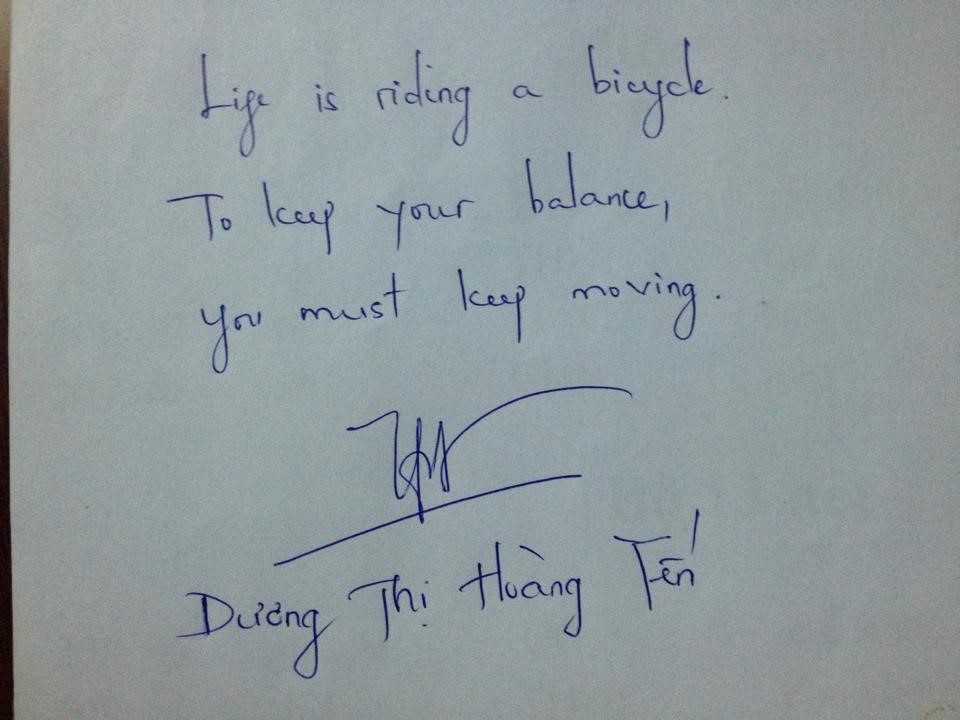 Life is riding a bicycle.
To keep your balance,
you must keep moving.
Dương Thị Hoàng Tến